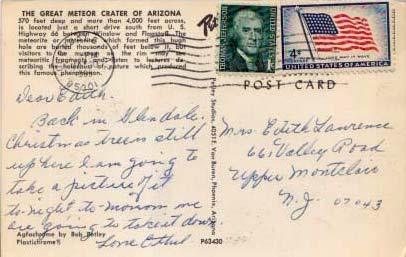 THE GREAT METEOR CRATER OF ARIZONA
570 feet deep and more than 4,000 feet across,
is located just a short drive south from U. S.
Highway 66 between Winslow and Flagstaff. The
meteorite or meteorites which formed this huge
hole are buried thousands of feet below it, but
visitors to the museum on the rim may see
meteoritic fragments and listen to lectures de-
scribing the holocaust of nature which produced
this famous phenomenon.
1¢
4¢
LONG MAY IT WAVE
UNITED STATES OF AMERICA
POST CARD
Dear Edith.
Back in Glendale.
Christmas tree is still
up here I am going to
take a picture of it
to-night to-morrow we
are going to take it down.
Love Ethel
Petley Studios, 4051 E. Van Buren, Phoenix, Arizona
Mrs Edith Lawrence
661 Valley Road
Upper Montclair
N.J. 07043
Agfachrome by Bob Petley
Plastichrome®
P63430